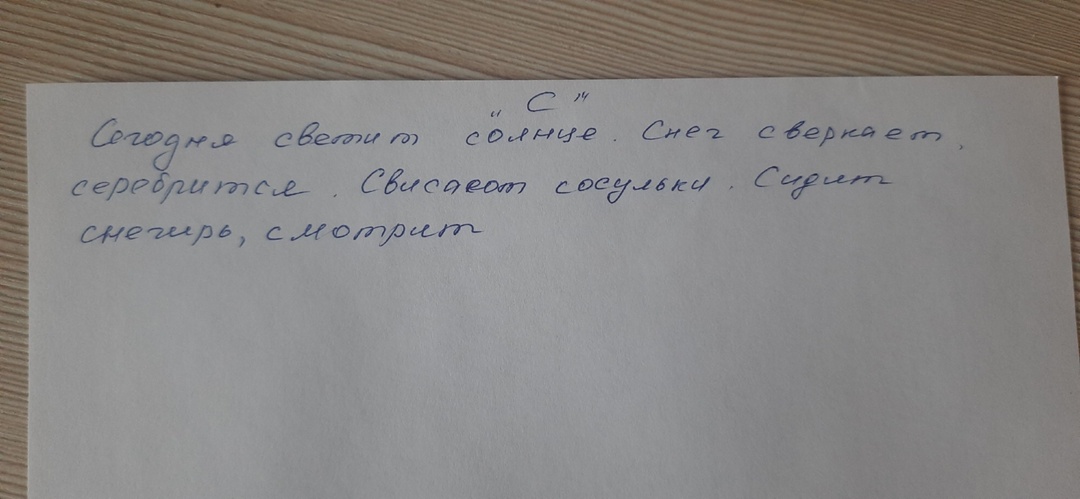 "С"
Сегодня светит солнце. Снег сверкает,
серебрится. Свисают сосульки. Сидит
снегирь, смотрит